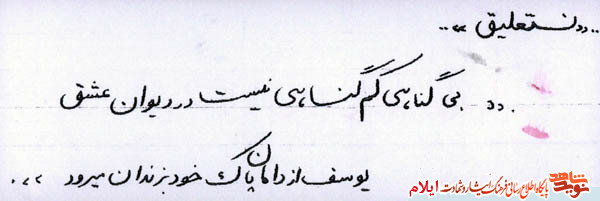 ..«نستعلیق»..
.«بی گناهی کم گناهی نیست در دیوان عشق
یوسف از دامان پاک خود بزندان میرود».
نوید شاهد
پایگاه اطلاع رسانی فرهنگ ایثار و شهادت ایلام